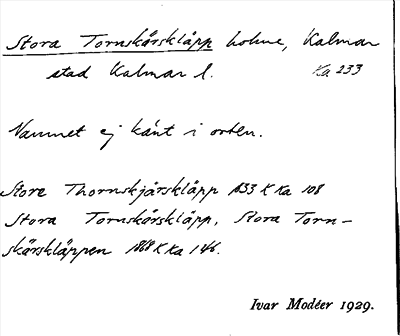 Stora Tornskärskläpp holme, Kalmar
stad Kalmar l. Ka 233
Namnet ej känt i orten.
Store Thornskjärskläpp 1833 K Ka 108
Stora Tornskärskläpp, Stora Torn-
skärskläppen 1868 K Ka 146.
Ivar Modéer 1929.